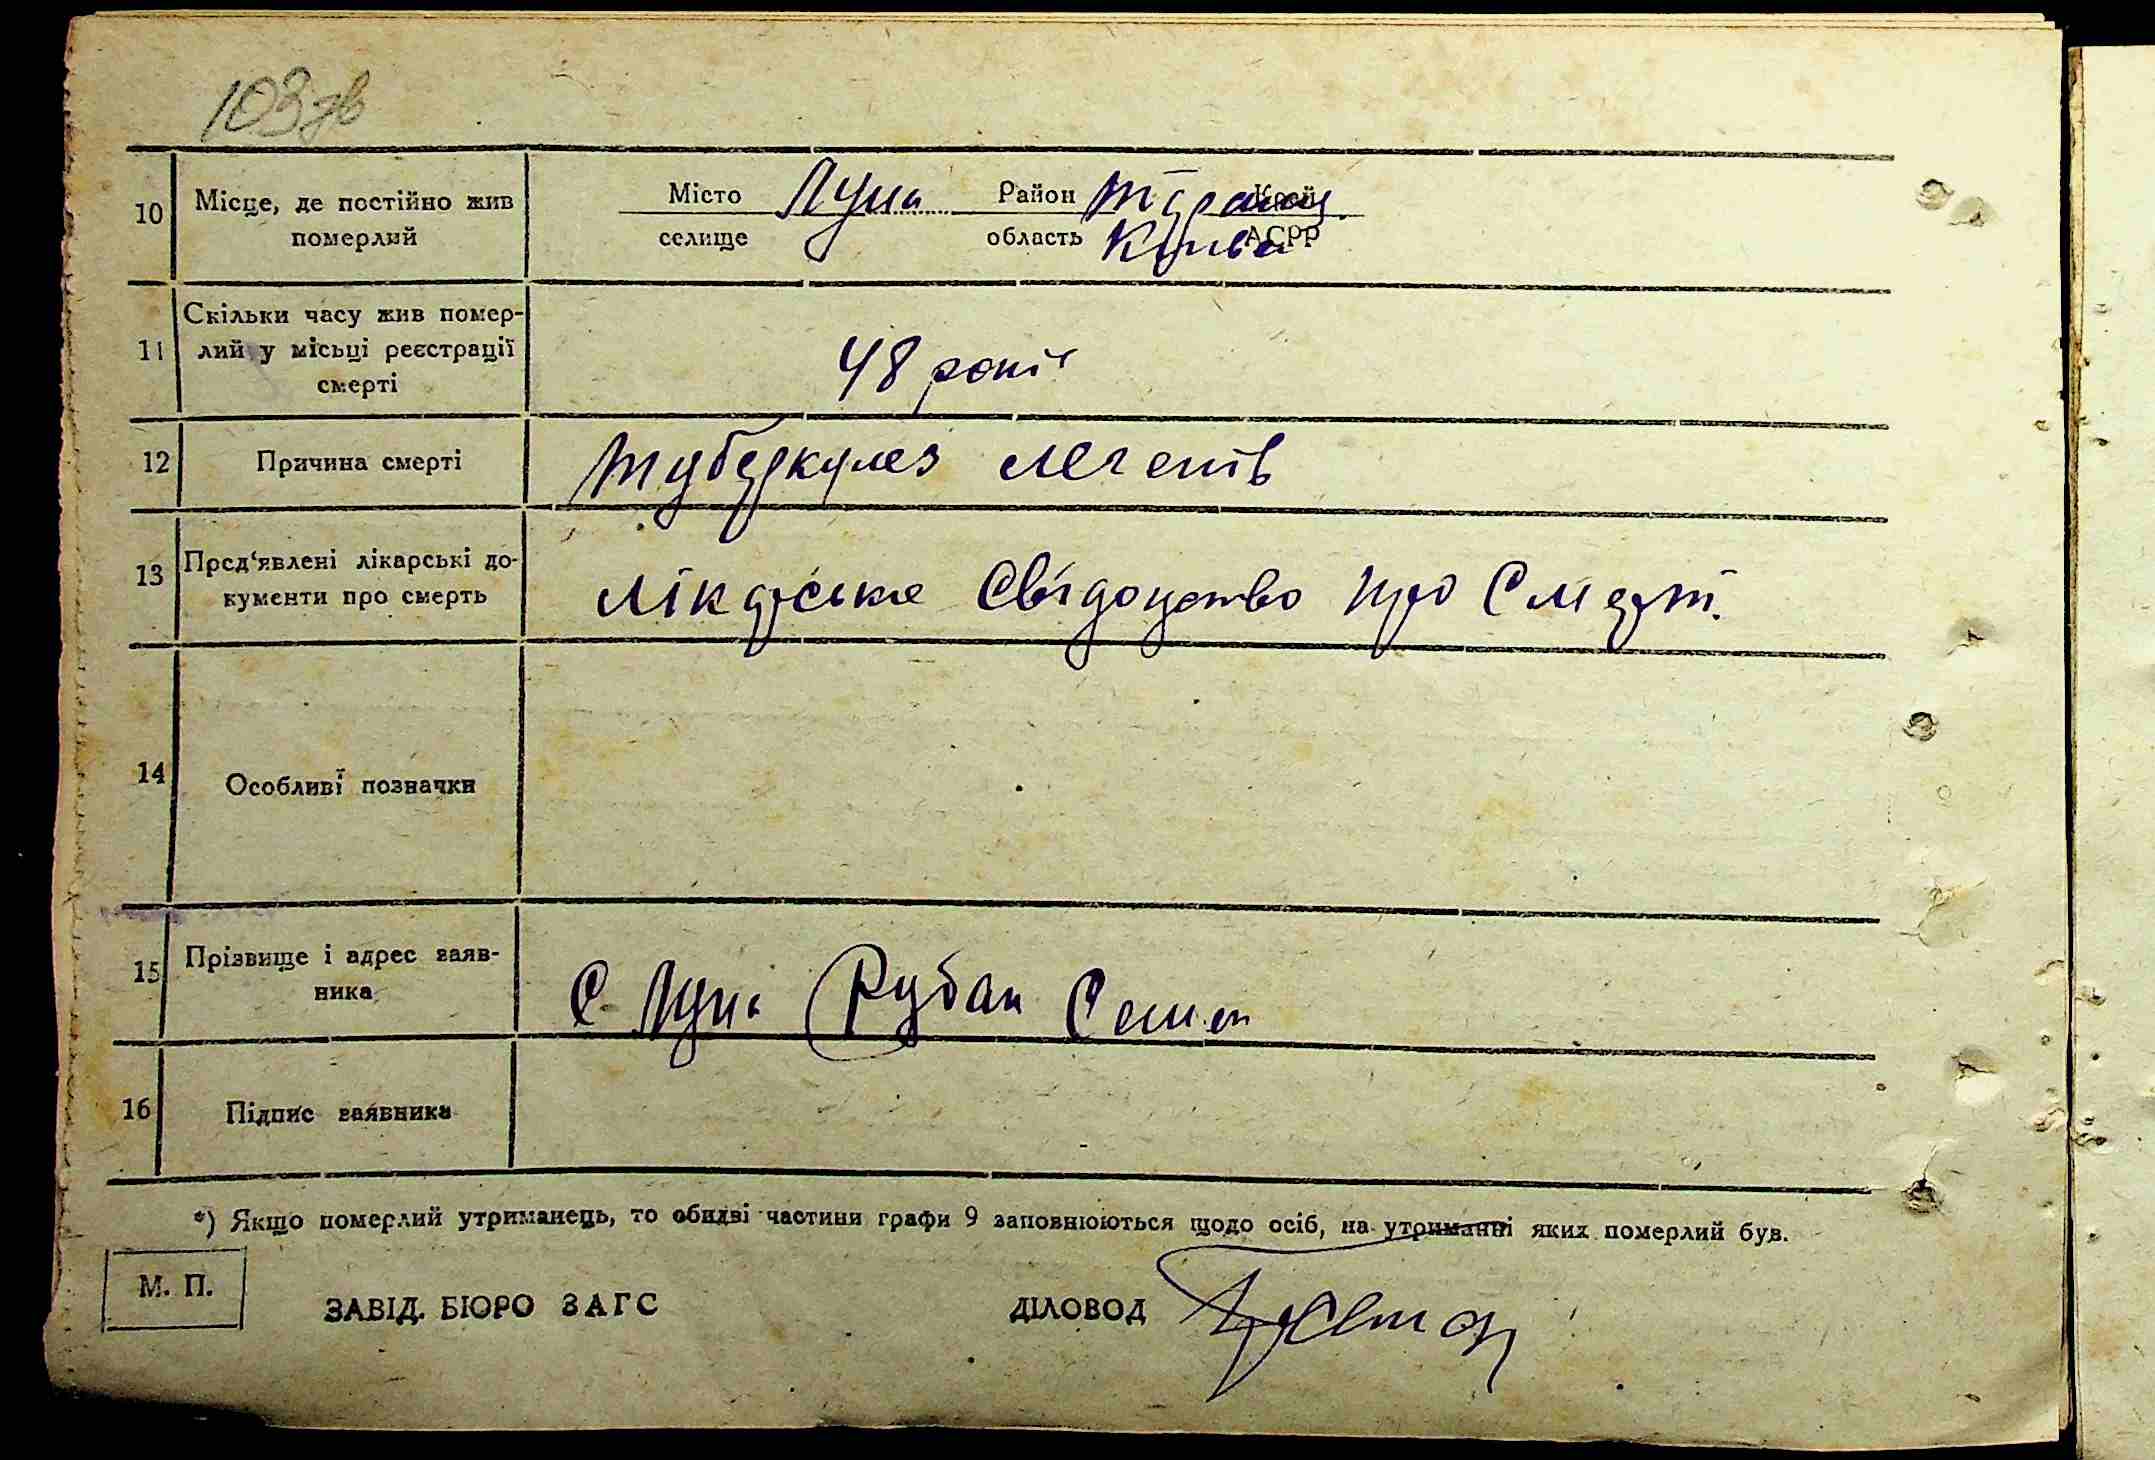 103 зв
10 Місце, де постійно жив померлий Місто Лука Район
селище область АСРР
11 Скільки часу жив помер-
лий у місьці реєстрації
смерті
48 років
12 Причина смерті Туберкулез легенів
13 Пред'явлені лікарські до-
кументи про смерть
Лікарське Свідоцтво про Смерт.
14 Особливі позначки
15 Прізвище і адрес заяв-
ника
С. Лука Рубан Семен
16 Підпис заявника
*) Якщо померлий утриманець, то обидві частини графи 9 заповнюються щодо осіб, на утриманні яких померлий був.
М. П.
ЗАВІД. БЮРО ЗАГС ДІЛОВОД